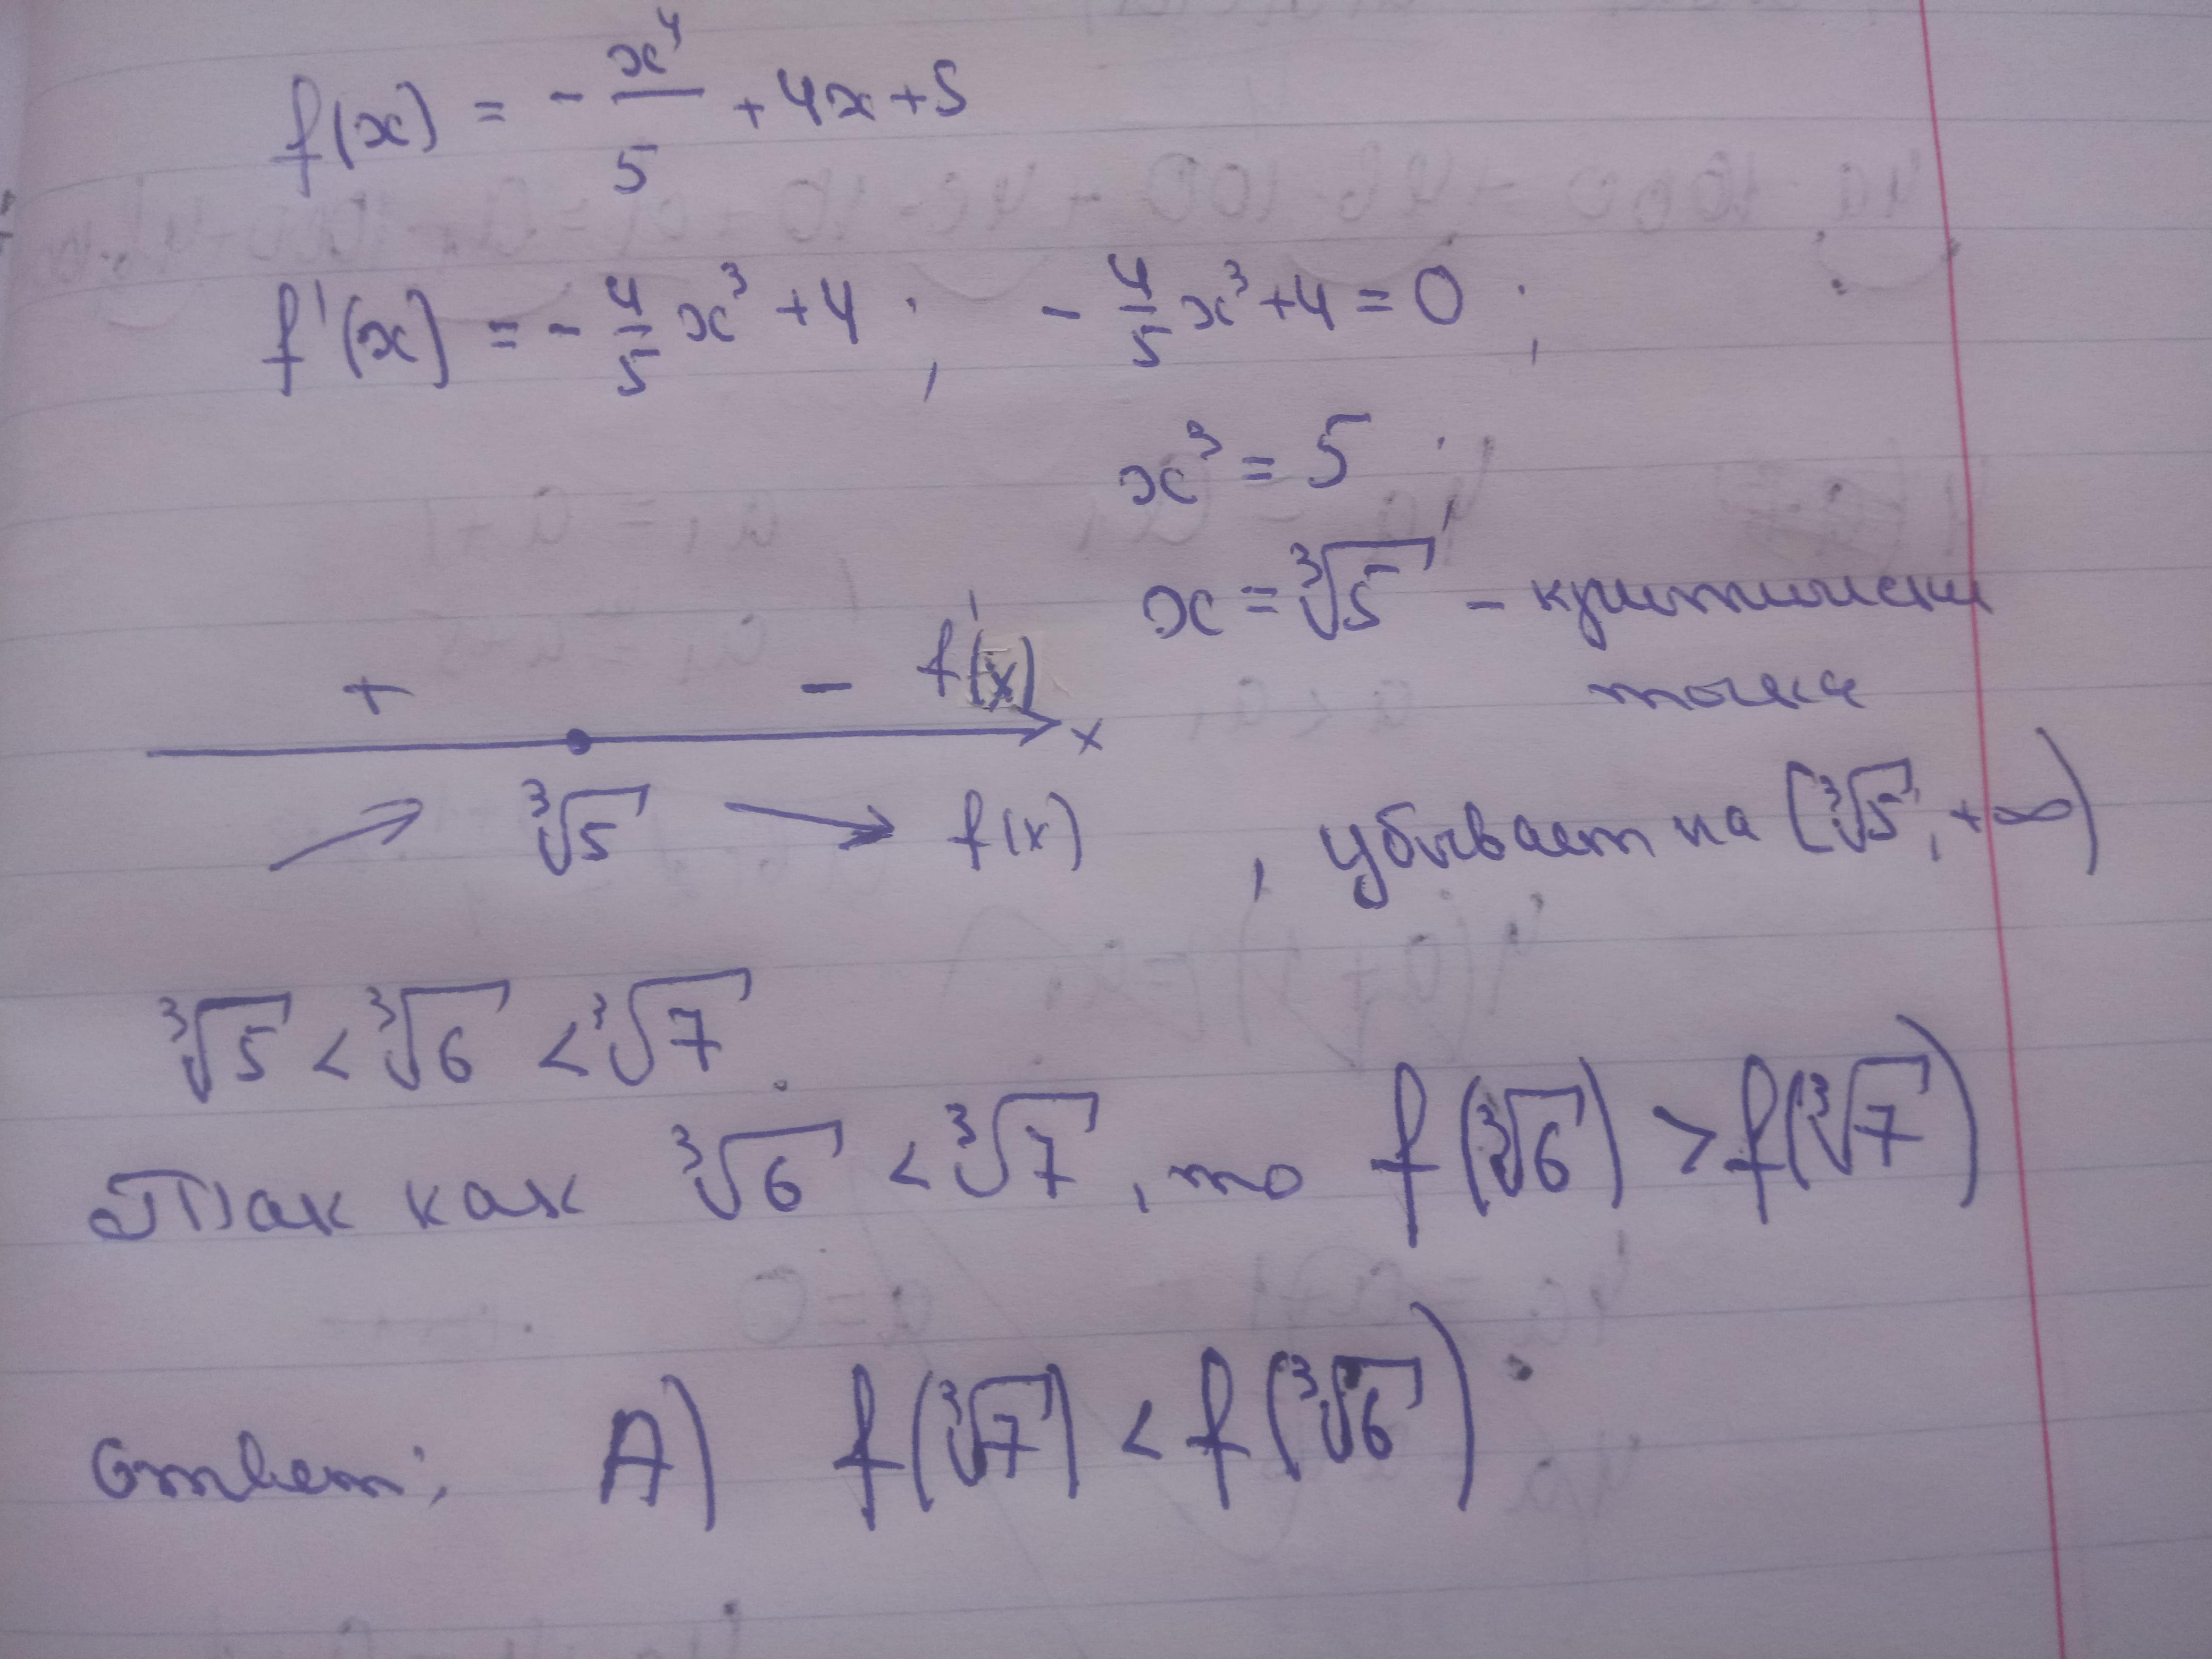 f(x) = - x⁴/5 + 4x + 5
f'(x) = - 4/5 x³ + 4 ; - 4/5 x³ + 4 = 0 ;
x³ = 5 ;
x = ∛5 - критическая
точка
+ - f'(x)
x
∛5 f(x) , убывает на [∛5, +∞)
∛5 < ∛6 < ∛7 .
Так как ∛6 < ∛7 , то f(∛6) > f(∛7)
Ответ: А) f(∛7) < f(∛6) .